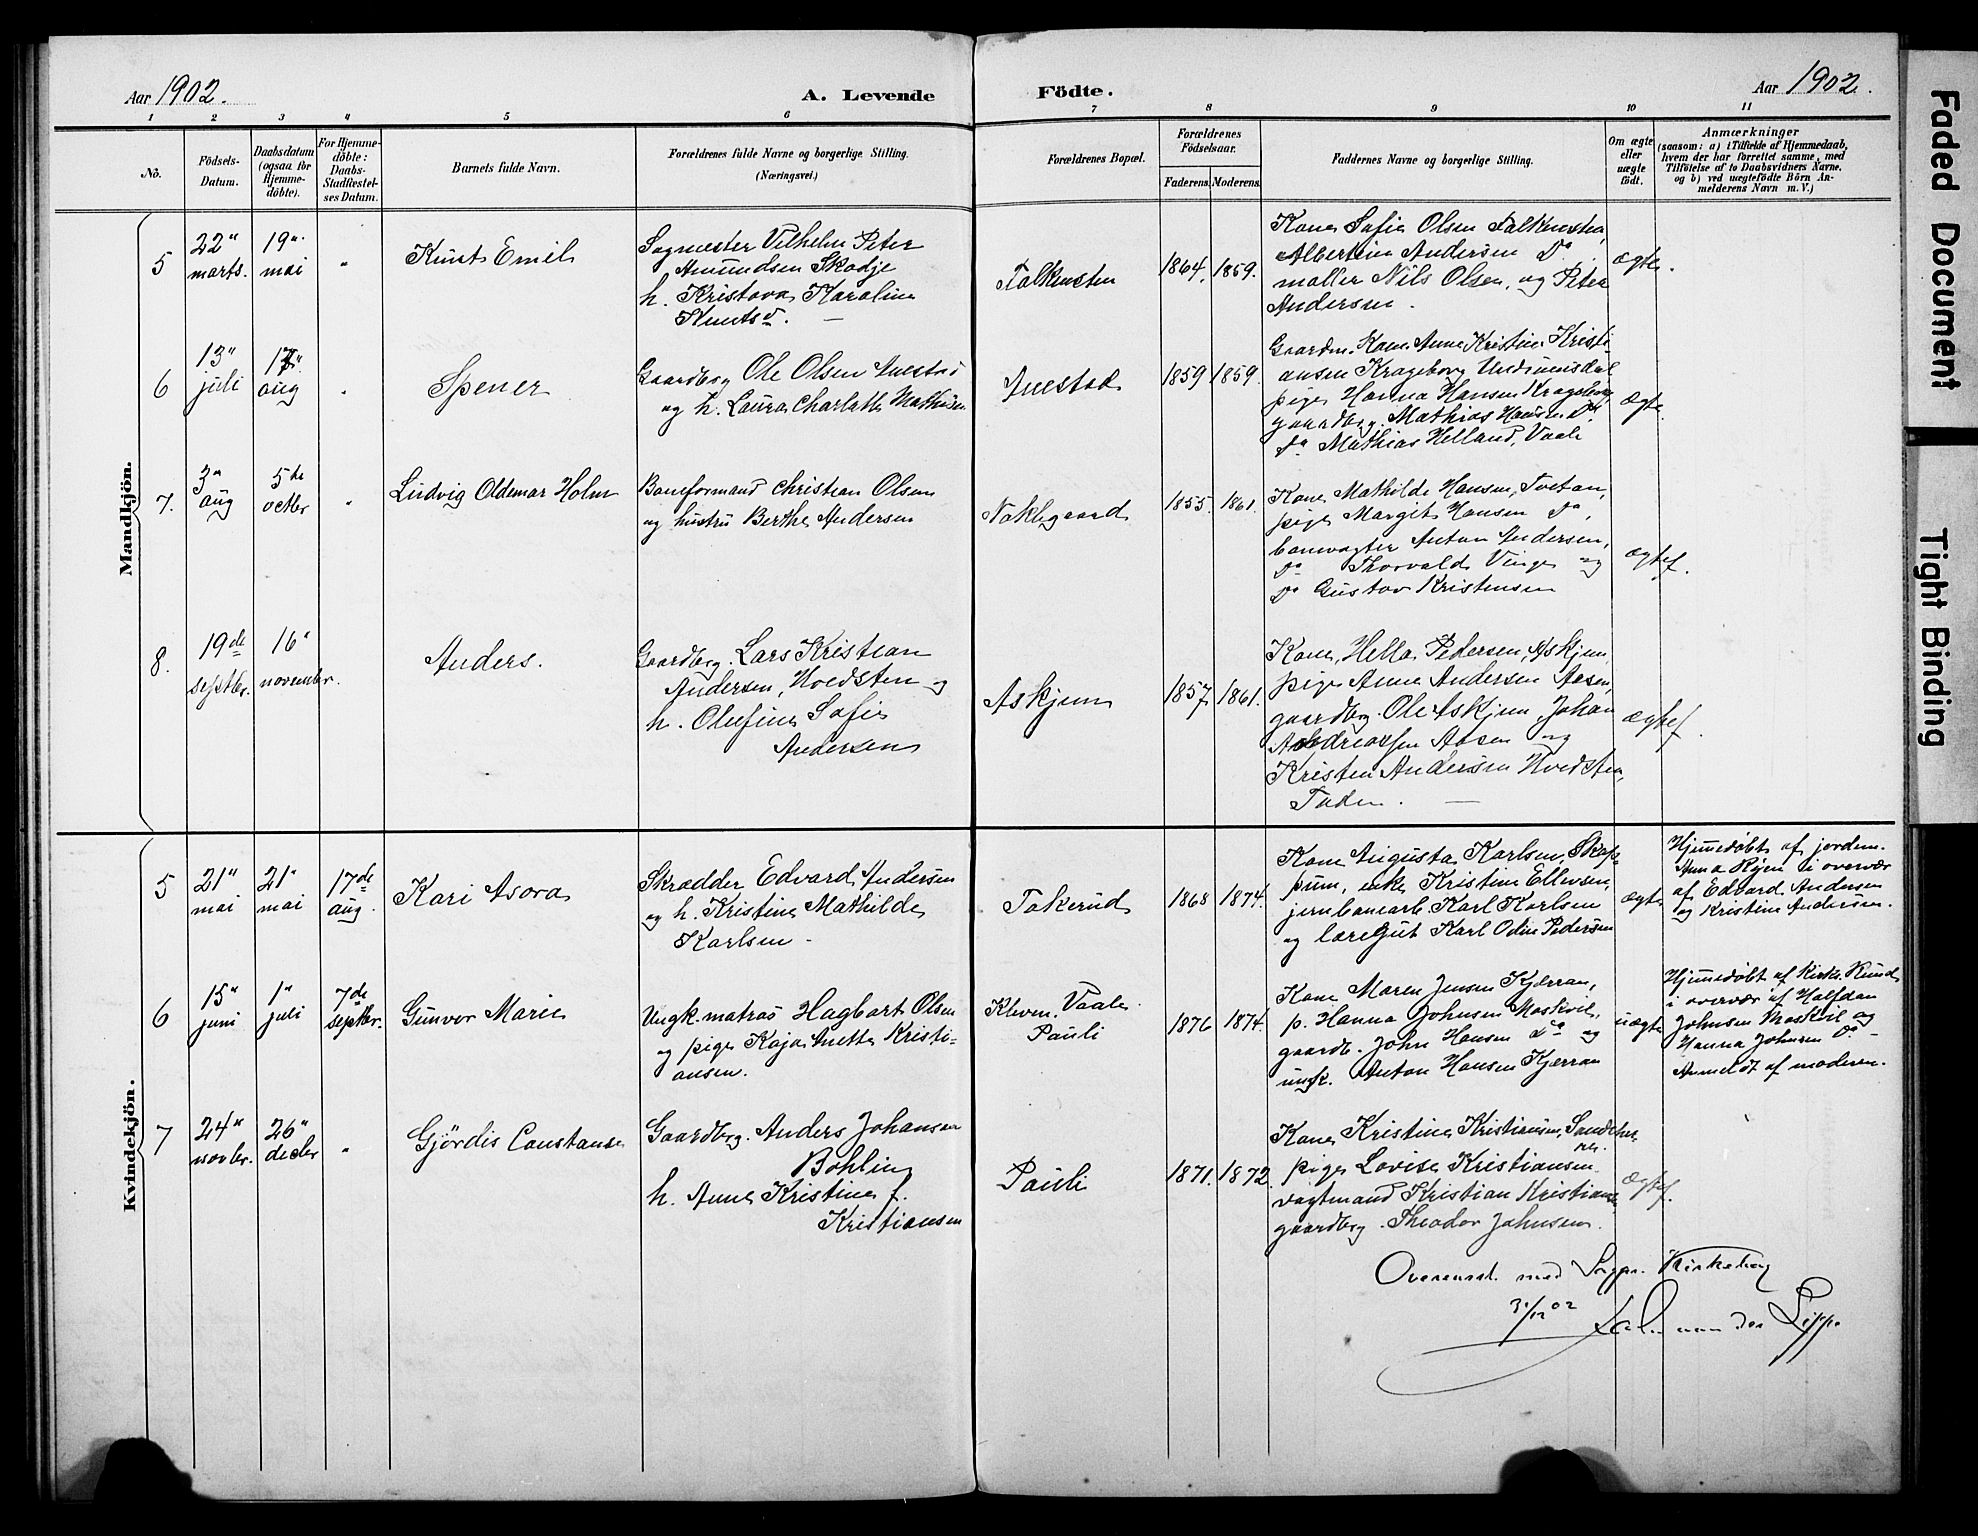 Aar 1902.
A. Levende Födte.
Aar 1902.
1 2 3 4 5 6 7 8 9 10 11
No.
Födsels-
Datum.
Daabsdatum
(ogsaa for
Hjemme-
döbte).
For Hjemme-
döbte:
Daabs-
Stadfæstel-
ses Datum.
Barnets fulde Navn.
Forældrenes fulde Navne og borgerlige Stilling.
(Næringsvei.)
Forældrenes Bopæl.
Forældrenes
Födselsaar.
Faderens. Moderens.
Faddernes Navne og borgerlige Stilling.
Om ægte
eller
uægte
födt.
Anmærkninger
(saasom: a) i Tilfælde af Hjemmedaab,
hvem der har forrettet samme, med
Tilföielse af to Daabsvidners Navne,
og b) ved uægtefödte Börn An-
melderens Navn m. V.)
Mandkjön.
5
22"
marts.
19"
mai
"
Knut Emil
Sagmester Vilhelm Peter
Amundsen Skodje
h. Kristova Karoline
Knuts d.
Falkensten
1864. 1859.
Kone Sofie Olsen Falkensten,
Albertine Andersen Do.
møller Nils Olsen, og Peter
Andersen.
ægte.
6
13"
juli
17"
aug
"
Spener
Gaardbrg Ole Olsen Auestad
og h. Laura Charlotte Mathisen
Auestad
1859 1859.
Gaardm. Kone Anne Kristine Kristi
ansen Krageborg Undrumsdal
pige Hanna Hansen Krageborg,
gaardbrg. Mathias Hansen Do
Do Mathias Helland, Vaale
ægte.
7.
3"
aug
5te
octbr
"
Ludvig Oldemar Holm
Baneformand Christian Olsen
og hustru Berthe Andersen
Naklegaard
1855. 1861.
Kone Mathilde Hansen, Tvetan,
pige Margit Hansen Do,
banevogter Anton Andersen,
Do Thorvald Vinge og
Do Gustav Kristensen
ægtef.
8.
19de
septbr.
16"
novembr.
Anders.
Gaardbrg. Lars Kristian
Andersen, Hvedsten og
h. Olufine Sofie
Andersen
Askjem
1857 1861.
Kone, Hella Pedersen, Askjem,
pige Anne Andersen Aasen,
gaardbrg Ole Askjem, Johan
Andreassen Aasen og
Kristen Andersen Hvedsten,
Faden. —
ægtef.
Kvindekjön.
5
21"
mai
21"
mai
17de
aug.
Kari Asora
Skrædder Edvard Andersen
og h. Kristine Mathilde
Karlsen -
Takerud
1868 1874.
Kone Augusta Karlsen, Skop-
pum, enke Kristine Ellevsen,
jernbanearb. Karl Karlsen
og læregut Karl Odin Pedersen
ægte.
Hjemmedøbt af jordem.
Anna Ryen i overvær
af Edvard Andersen
og Kristine Andersen.
6
15"
juni
1"
juli
7de
septbr.
Gunvor Marie
Ungk. matros Hagbart Olsen
og pige Kaja Anette Kristi-
ansen.
Kleven. Vaale.
Pauli
1876 1874.
Kone Maren Jensen Kjærran,
p. Hanna Johnsen Moskvil,
gaardb. John Hansen Do og
ungk. Anton Hansen Kjærran
uægte
Hjemmedøbt af Kirks. Rund
i overvær af Halfdan
Johnsen Moskvil og
Hanna Johnsen Do -
Anmeldt af moderen.
7
24"
novbr.
26"
decbr
"
Gjördis Constanse
Gaardbrg. Anders Johansen
Bohling
h. Anne Kristine f.
Kristiansen
Pauli
1871. 1872.
Kone Kristine Kristiansen, Sandehe
red.
pige Lovise Kristiansen
vagtmand Kristian Kristianse
gaardbrg. Theodor Johnsen.
ægtef.
Overensst. med Sogpr. Kirkebog
31/12 02
von der Lippe
Faded Document
Tight Binding